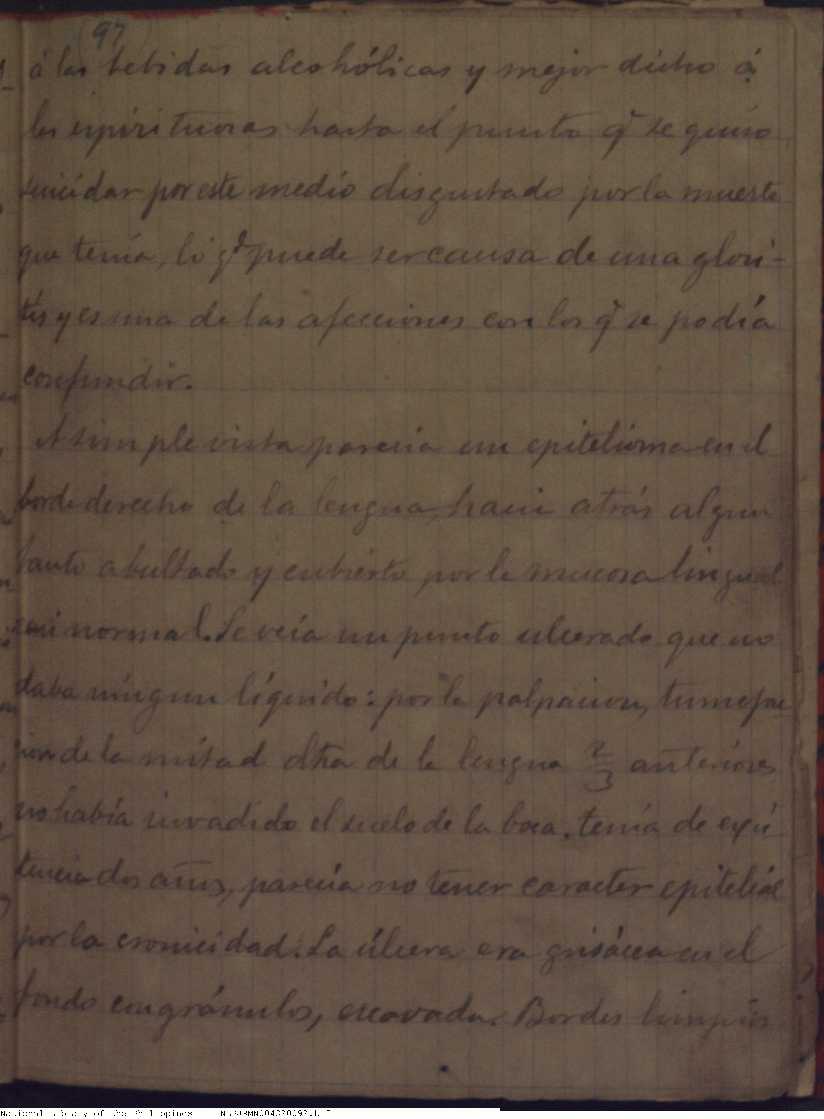 (97)
á las bebidas alcohólicas y mejor dicho á
las espirituosas hasta el punto q.e se quiso
suicidar por este medio disgustado por la muerte
que tenía, lo q.e puede ser causa de una glosi-
tis y es una de las afecciones con los q.e se podía
confundir.
A simple vista parecía un epitelioma en el
borde derecho de la lengua, hacia atrás algun
tanto abultado y cubierto por la mucosa lingual
casi normal. Se veía un punto ulcerado que no
daba ningun líquido: por la palpacion, tumefac
cion de la mitad dha de la lengua 2/3 anteriores
no había invadido el suelo de la boca. tenía de exis
tencia dos años, parecía no tener caracter epitelial
por la cronicidad. La úlcera era grisácea en el
fondo con gránulos, excavada. Bordes limpios
National Library of the Philippines